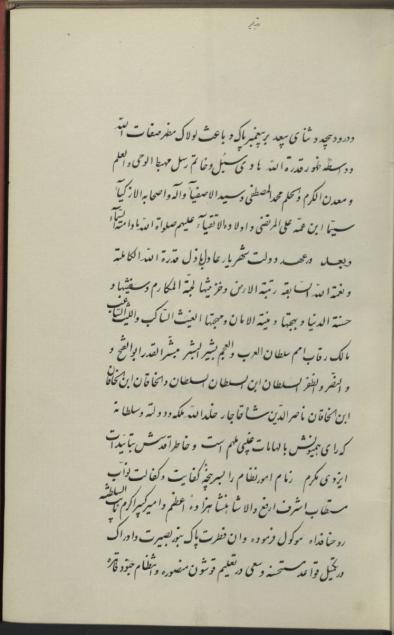 و درود بیحد و ثنای بیعد بر پیغمبر پاک و باعث لولاک مظهر صفات الله
و واسطه ظهور قدرة الله هادی سبل و خاتم رسل مهبط الوحی و العلم
و معدن الکرم و الحلم محمد المصطفی و سید الاصفیآء و آله و اصحابه الازکیآء
سیما ابن عمه علی المرتضی و اولاده الاتقیآء علیهم صلواة الله مادامت السمآء
و بعد در عهد دولت شهریار عادل باذل قدرة الله الکاملة
و نعمة الله السابقه رتبة الارض و خزینتها لجة المکارم و سفینتها و
حسنة الدنیا و بهجتها و منیة الامان و مهجتها الغیث الساکب و اللیث الغاضب
مالک رقاب امم سلطان العرب و العجم بشیر البشر مبشر القدر ابو الفتح و
و النصر و الظفر السلطان ابن السلطان السلطان و الخاقان ابن الخاقان
ابن الخاقان ناصر الدین شاه قاجار خلد الله ملکه و دولته و سلطانه
که رای همیونش بالهامات غیبی ملهم است و خاطر اقدسش بتائیدات
ایزدی مکرم زمام امور نظام را بسر پنجه کفایت و کفالت نواب
مستطاب اشرف ارفع والا شاهنشاهزاده اعظم و امیر کبیر اکرم نایب السلطنه
روحنا فداه موکول فرموده و ان فطرت پاک بنور بصیرت و ادراک
در تکمیل قواعد مستحسنه و سعی در تعلیم قوشون منصوره و انتظام جنود قاهره